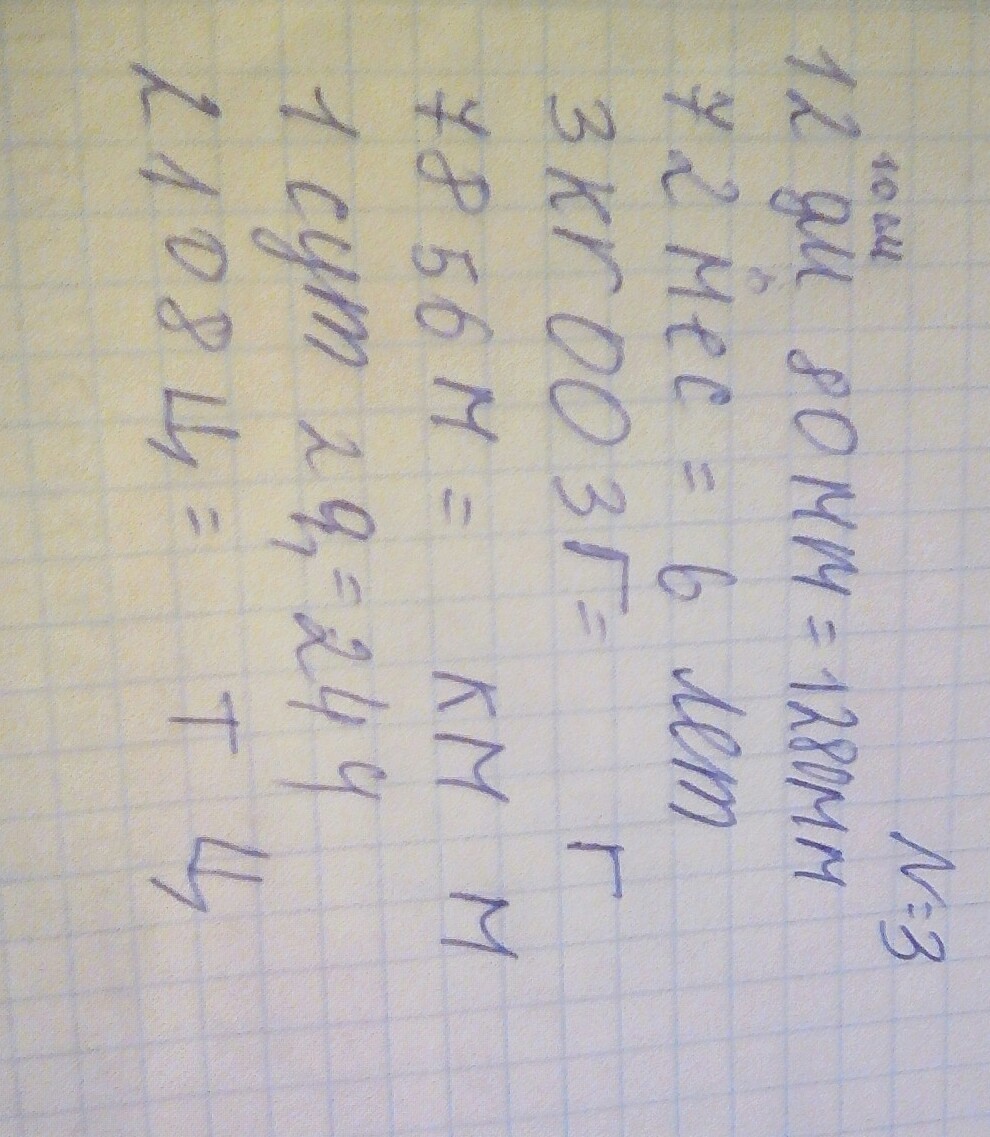 N=3
10 см
12 дм 80 мм = 1280мм
72 мес = 6 лет
3 кг 003г = г
7856 м = км м
1 сут 2ч = 244
2108ц = т ц